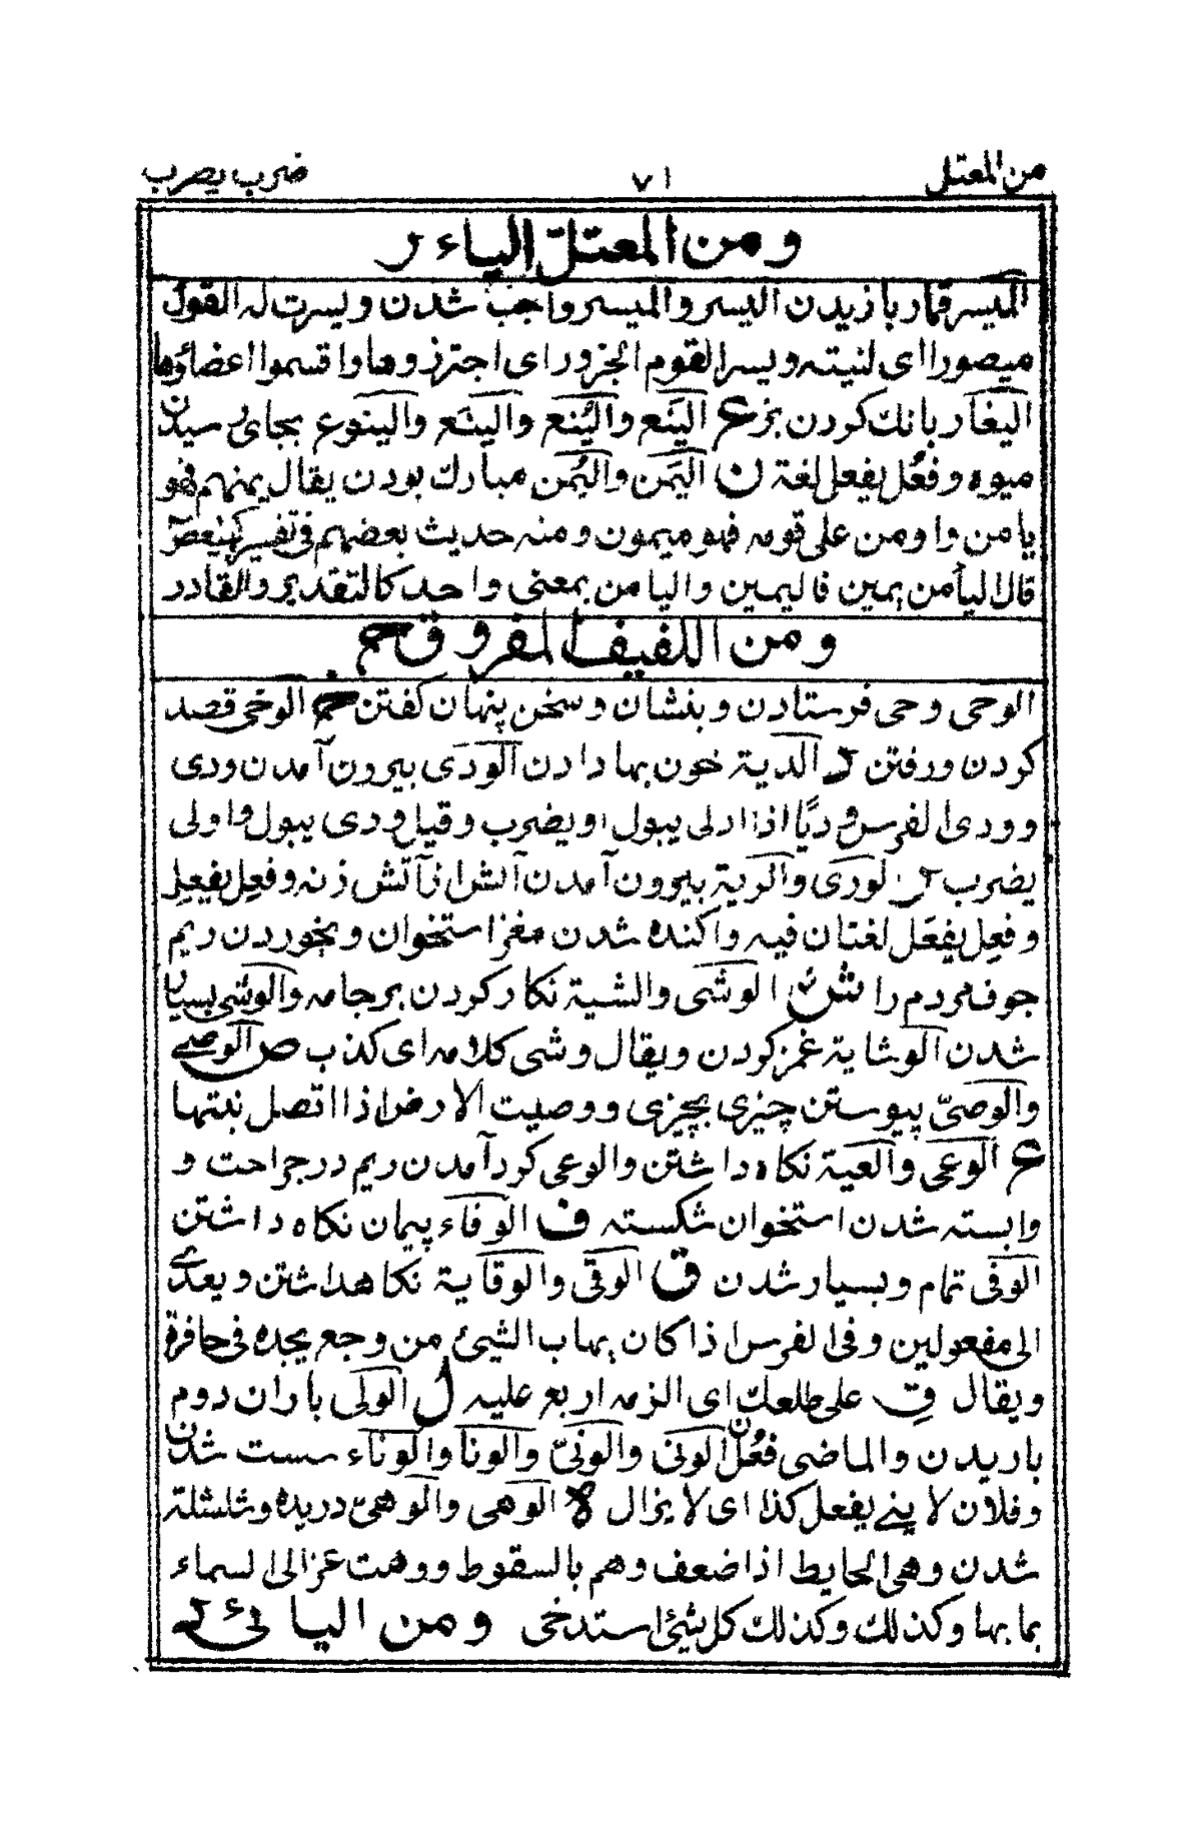 من المعتل ٧١ ضرب يضرب
ومن المعتلّ الياء ر
الميسر قمار بازيدن اليسر والميسر واجب شدن ويسرت له القول
ميصورا اى لنيته ويسر القوم الجزور اى اجتزروها واقسموا اعضاؤها
اليغار بانك كردن بز ع اليَنع والیُنع والينع والينوع بجاى رسيدن
ميوه وفعُل يفعل لغة ن اليَمن واليُمن مبارك بودن يقال يمنهم فهو
يامن وا ومن على قومه فهو ميمون ومنه حديث بعضهم فى تفسير كهيعص
قال اليأمن يمين فاليمين واليامن بمعنى واحد كالتقدير والقادر
ومن اللفيف المفروق ح
الوحى وحى فرستادن وبنشان وسخن پنهان كفتن خ الوخى قصد
كردن ورفتن د الدية خون بها دادن الودى بيرون آمدن ودى
وودى الفرس وديًا اذا ادلى يبول او يضرب وقيل ودى يبول واولى
يضرب ر لورى والرية بيرون آمدن آتش از آتش زنه وفعِل يفعِل
وفعِل يفعَل لغتان فيه واكنده شدن مغز استخوان وبخوردن ريم
جوف مردم را ش الوشى والشية نكار كردن بر جامه والوشى بسيار
شدن الوشاية غمز كردن ويقال وشى كلامه اى كذب ص الوصے
والوصىّ پيوستن چيزى بچيزى ووصيت الارض اذا اتصل نبتها
ع الوعى والعية نكاه داشتن والوعى كرد آمدن ريم در جراحت و
وابسته شدن استخوان شكسته ف الوفاء پيمان نكاه داشتن
الوفى تمام وبسيار شدن ق الوقى والوقاية نكاهداشتن ويعدى
الى مفعولين وقى الفرس اذا كان يهاب الشيئ من وجع يجده فى حافرة
ويقال قِ على ظلعك اى الزمه اربع عليه ل الولى باران دوم
باريدن والماضى فعُل ن الونى والونىّ والونا والوناء سست شدن
وفلان لا ينے يفعل كذا اى لا يزال ه الوهى والوهىّ دريده وشلشلة
شدن وهى الحايط اذا ضعف وهم بالسقوط ووهت عزالى لسماء
بما بها وكذلك وكذلك كل شيئ استدخى ومن اليائى ر